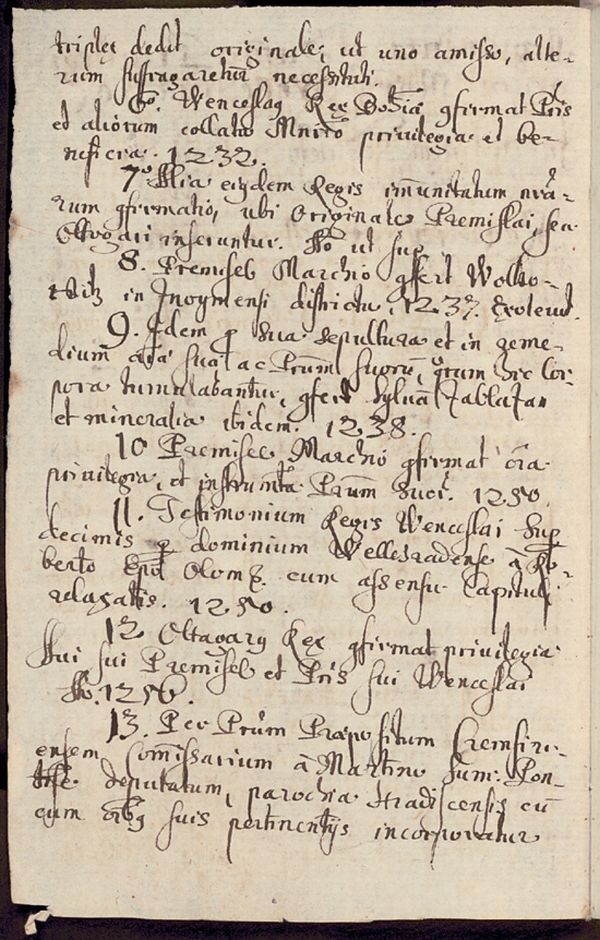 triplex dedit originale, ut uno amisso, alte-
rum suffragaretur necessitati.
6to. Wenceslaq Rex Boemiæ gfirmat Pris
et aliorum collatio Mnrio privilegia et be-
neficia. 1232.
7o Alia eiqdem Regis imunitatum nra-
rum gfirmatio, ubi Originales Premislai, seu
Ottogari inseruntur. Ao ut sup
8. Premisel Marchio gfert Wolko-
witz in Znoymensi districtu, 1237. Exolevit.
9. Idem p sua sepultura et in reme-
dium aæ suæ ac Prum suorum, qrum hic Cor-
pora tumulabantur, gfert Sylvam Jablujan
et mineralia ibidem. 1238.
10 Premisel Marchio gfirmat oia
privilegia, et instrumta Prum suor. 1250.
11. Testimonium Regis Wenceslai sup
decimis p dominium Wellegradense à Ro-
berto Epo Olomz. cum assensu Capituli
relaxatis. 1250.
12 Ottagarq Rex gfirmat privilegia
Aui sui Premisel et Pris sui Wenceslai
Ao. 1256.
13. Per Prum Præpositum Cremsiri-
ensem Comissarium à Martino sum: Pon-
tifce deputatum, parochia Hradiscensis cū
cum oibq suis pertinentijs incorporatur